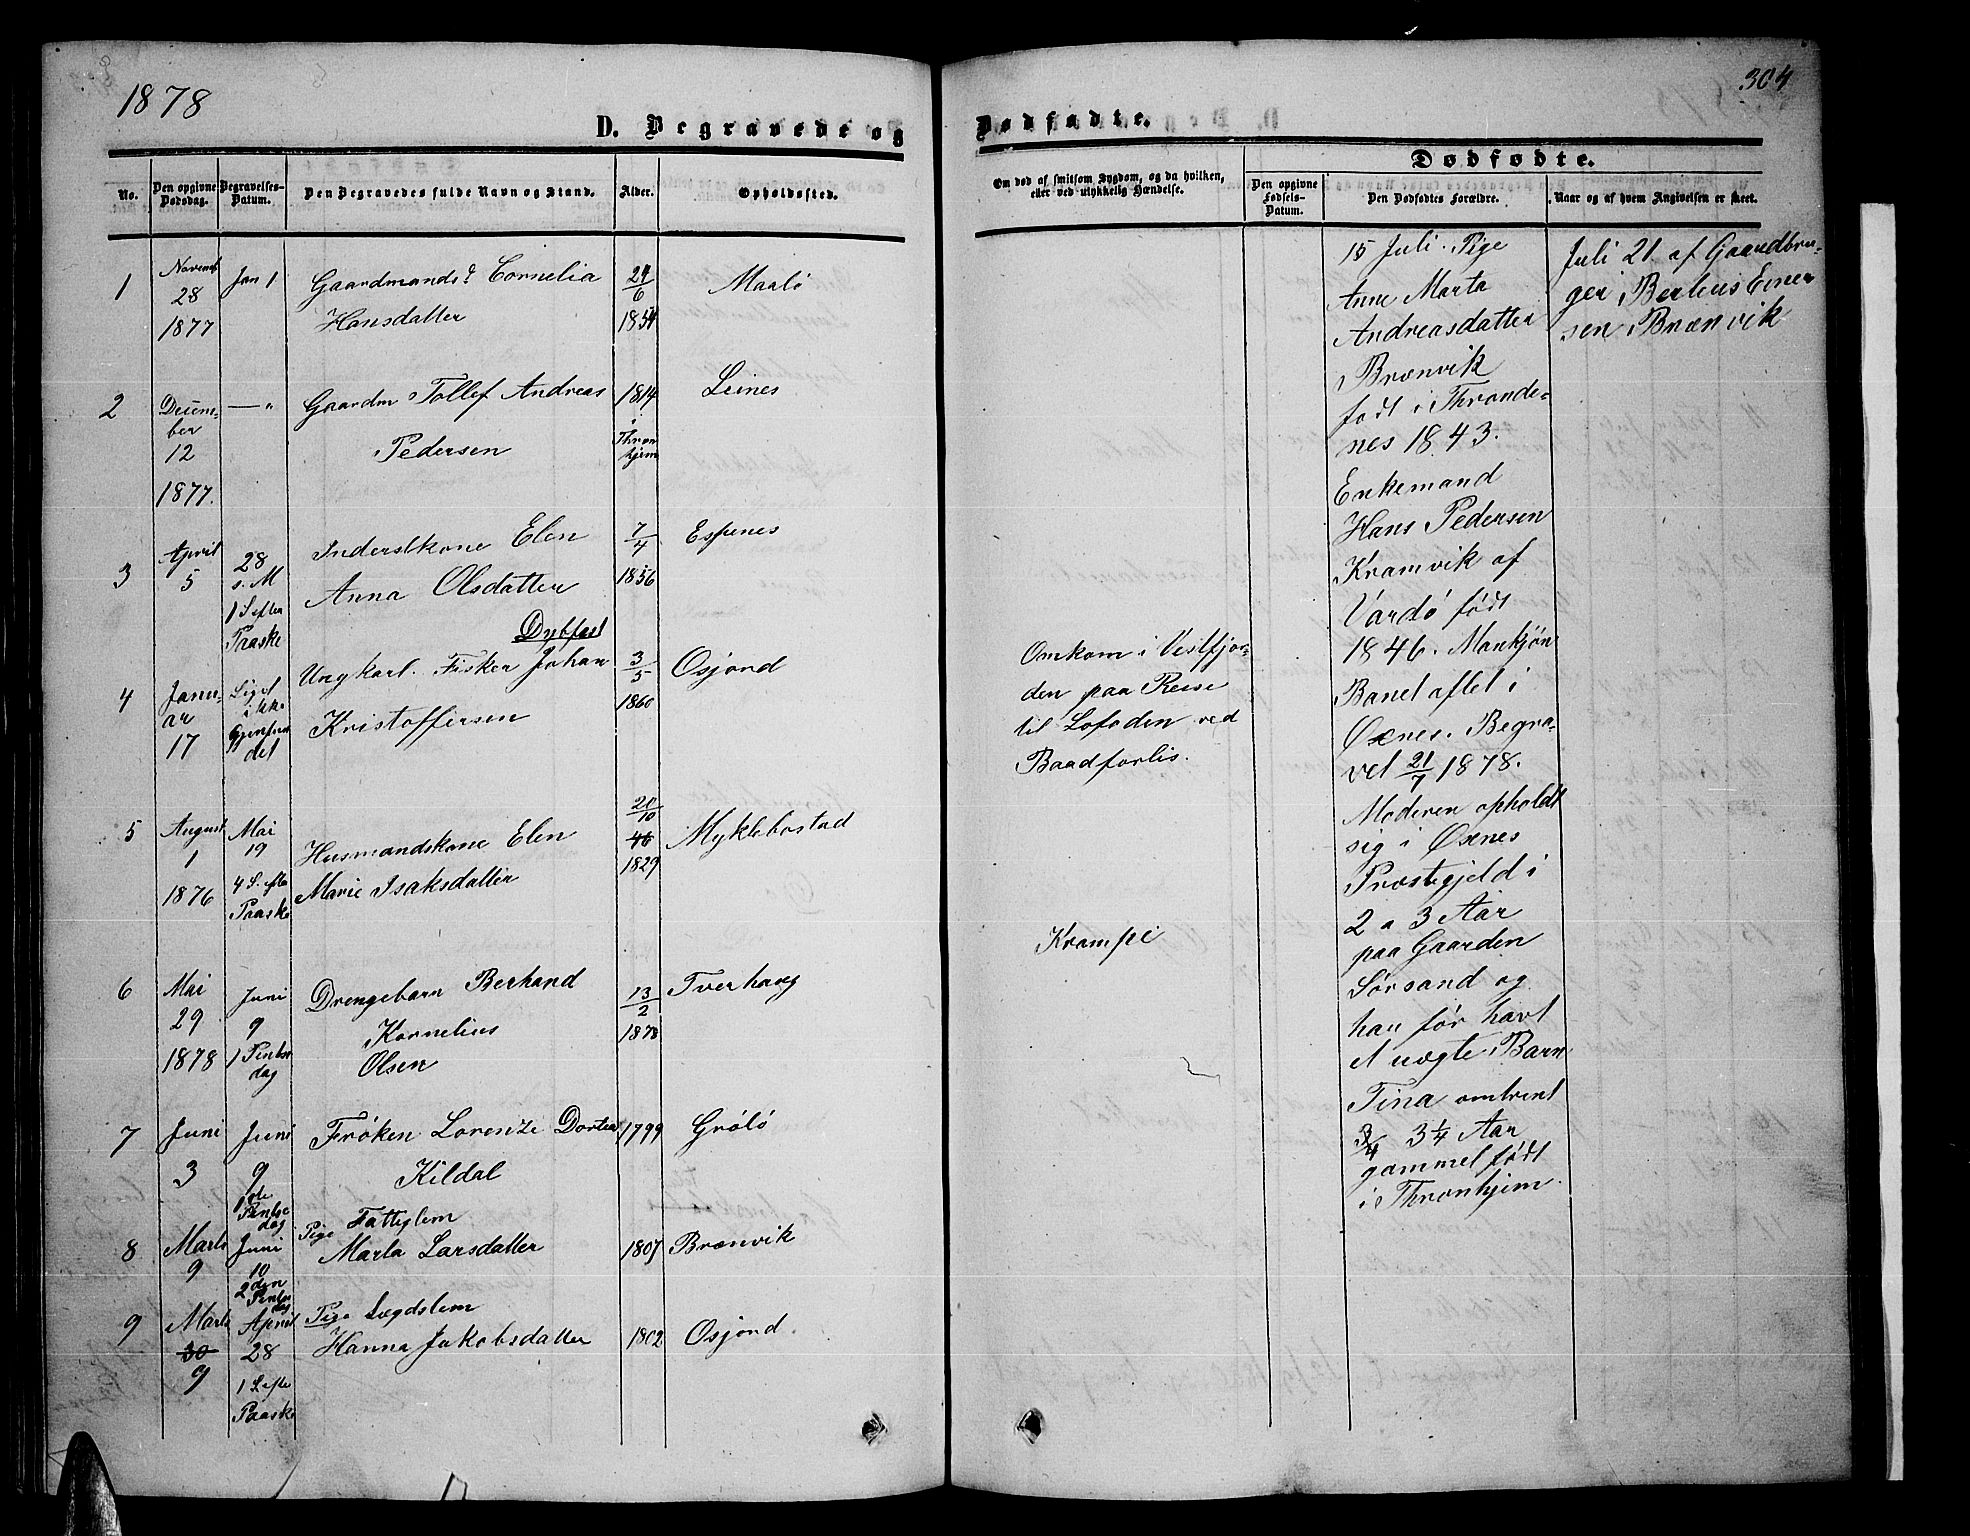 1878
304
D. Begravede og
Dødfødte.
Dødfødte.
No.
Den opgivne Dødsdag.
Begravelses-Datum.
Den Begravedes fulde Navn og Stand.
Alder.
Opholdssted.
Om død af smitsom Sygdom, og da hvilken,
eller ved ulykkelig Hændelse.
Den opgivne Fødsels-Datum.
Den Dødfødtes Forældre.
Naar og af hvem Angivelsen er skeet.
1
Novemb
28
1877
Jan 1
Gaardmandsd. Cornelia
Hansdatter
24/6
1854
Maalö
2
Decem-
ber
12
1877.
— "
Gaardm Tollef Andreas
Pedersen
1814
i
Thron
hjem
Leines
3
April
5
28
s. M
1 S efter
Paaske
Inderstkone Elen
Anna Olsdatter
7/4
1856
Espenes
4
Janu-
ar
17
Liget
ikke
gjenfun
det
Dybfest
Ungkarl. Fisker Johan
Kristoffersen
3/5
1860
Osjord
Omkom i Vestfjor-
den paa Reise
til Lofoden ved
Baadforlis.
5
August
1
1876
Mai
19
4 S. efter
Paaske
Husmandskone Elen
Marie Isaksdatter
20/10
46
1829
Myklebostad
6
Mai
29
1878
Juni
9
1 Pintse
dag
Drengebarn Berhand
Kornelius
Olsen
13/2
1878
Tverhaug
Krampe
7
Juni
3
Juni
9
1ste
Pintse
dag
Frøken Lorenze Dortea
Kildal
1799
Grölö
8
Marts
9
Juni
10
2den
Pintse
dag
Fattiglem
Pige
Marta Larsdatter
1807
Brænvik
9
Marts
30
9
April
28
1 S efter
Paaske
Pige Lægdslem
Hanna Jakobsdatter
1802
Osjord.
15 Juli. Pige
Anne Marta
Andreasdatter
i Brænvik
født i Thronde-
nes 1843.
Enkemand
Hans Pedersen
Kramvik af
Vardö født
1846. Mankjön
Barnet aflet i
Øxnes. Begra-
vet 21/7 1878.
Moderen opholdt
sig i Øxnes
Præstegjeld i
2 a 3 Aar
paa Gaarden
Sörsand og
har för havt
et uægte Barn
Tina omtrent
3/4 3 1/4 Aar
gammel født
i Thronhjem.
Juli 21 af Gaardbru-
ger Berhus Einer
sen i Brænvik